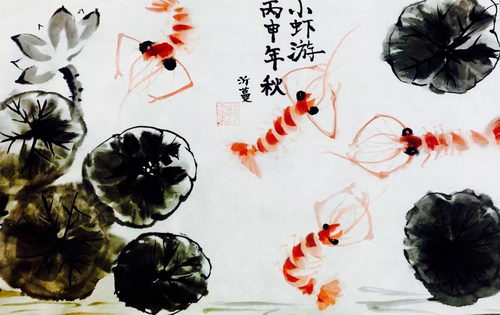 小虾游
丙申年秋
沂蔓